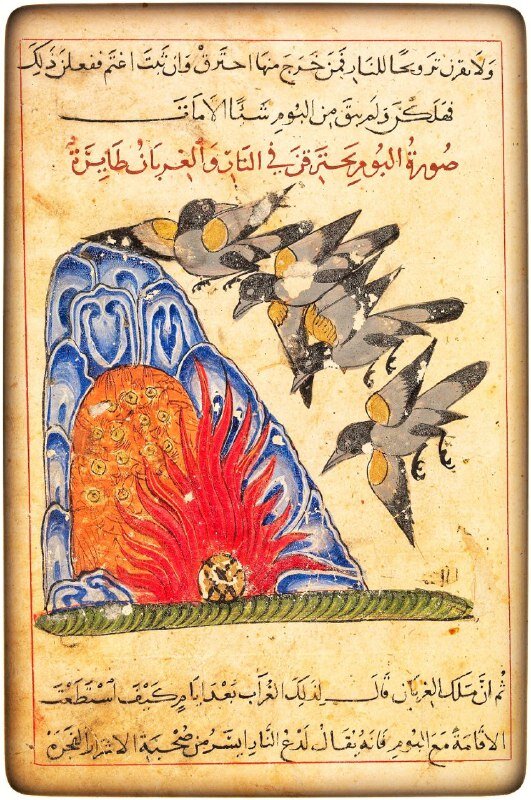 ولا يفرن ترويحًا للنار فمن خرج منها احترق وان ثبت اغتم ففعلن ذلك
فهلكن ولم يبق من البوم شئا الا مات
صورة البوم يحترقن في النار والغربان طايرة
ثم ان ملك الغربان قال لذلك الغراب بعد ايام كيف استطعت
الاقامة مع البوم فانه يقال لدغ النار ايسر من صحبة الاشرار الفجرة